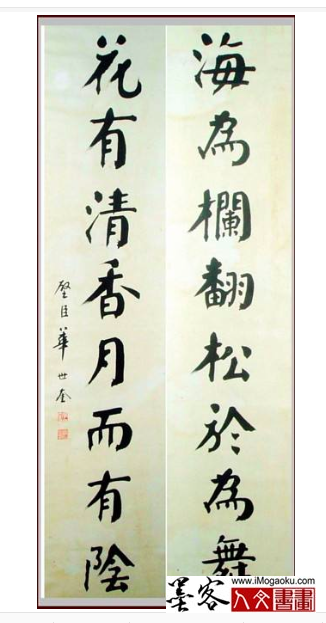 海為欄翻松於為舞
花有清香月而有陰
璧臣華世奎
www.iMogaoku.com
墨客人文書畫